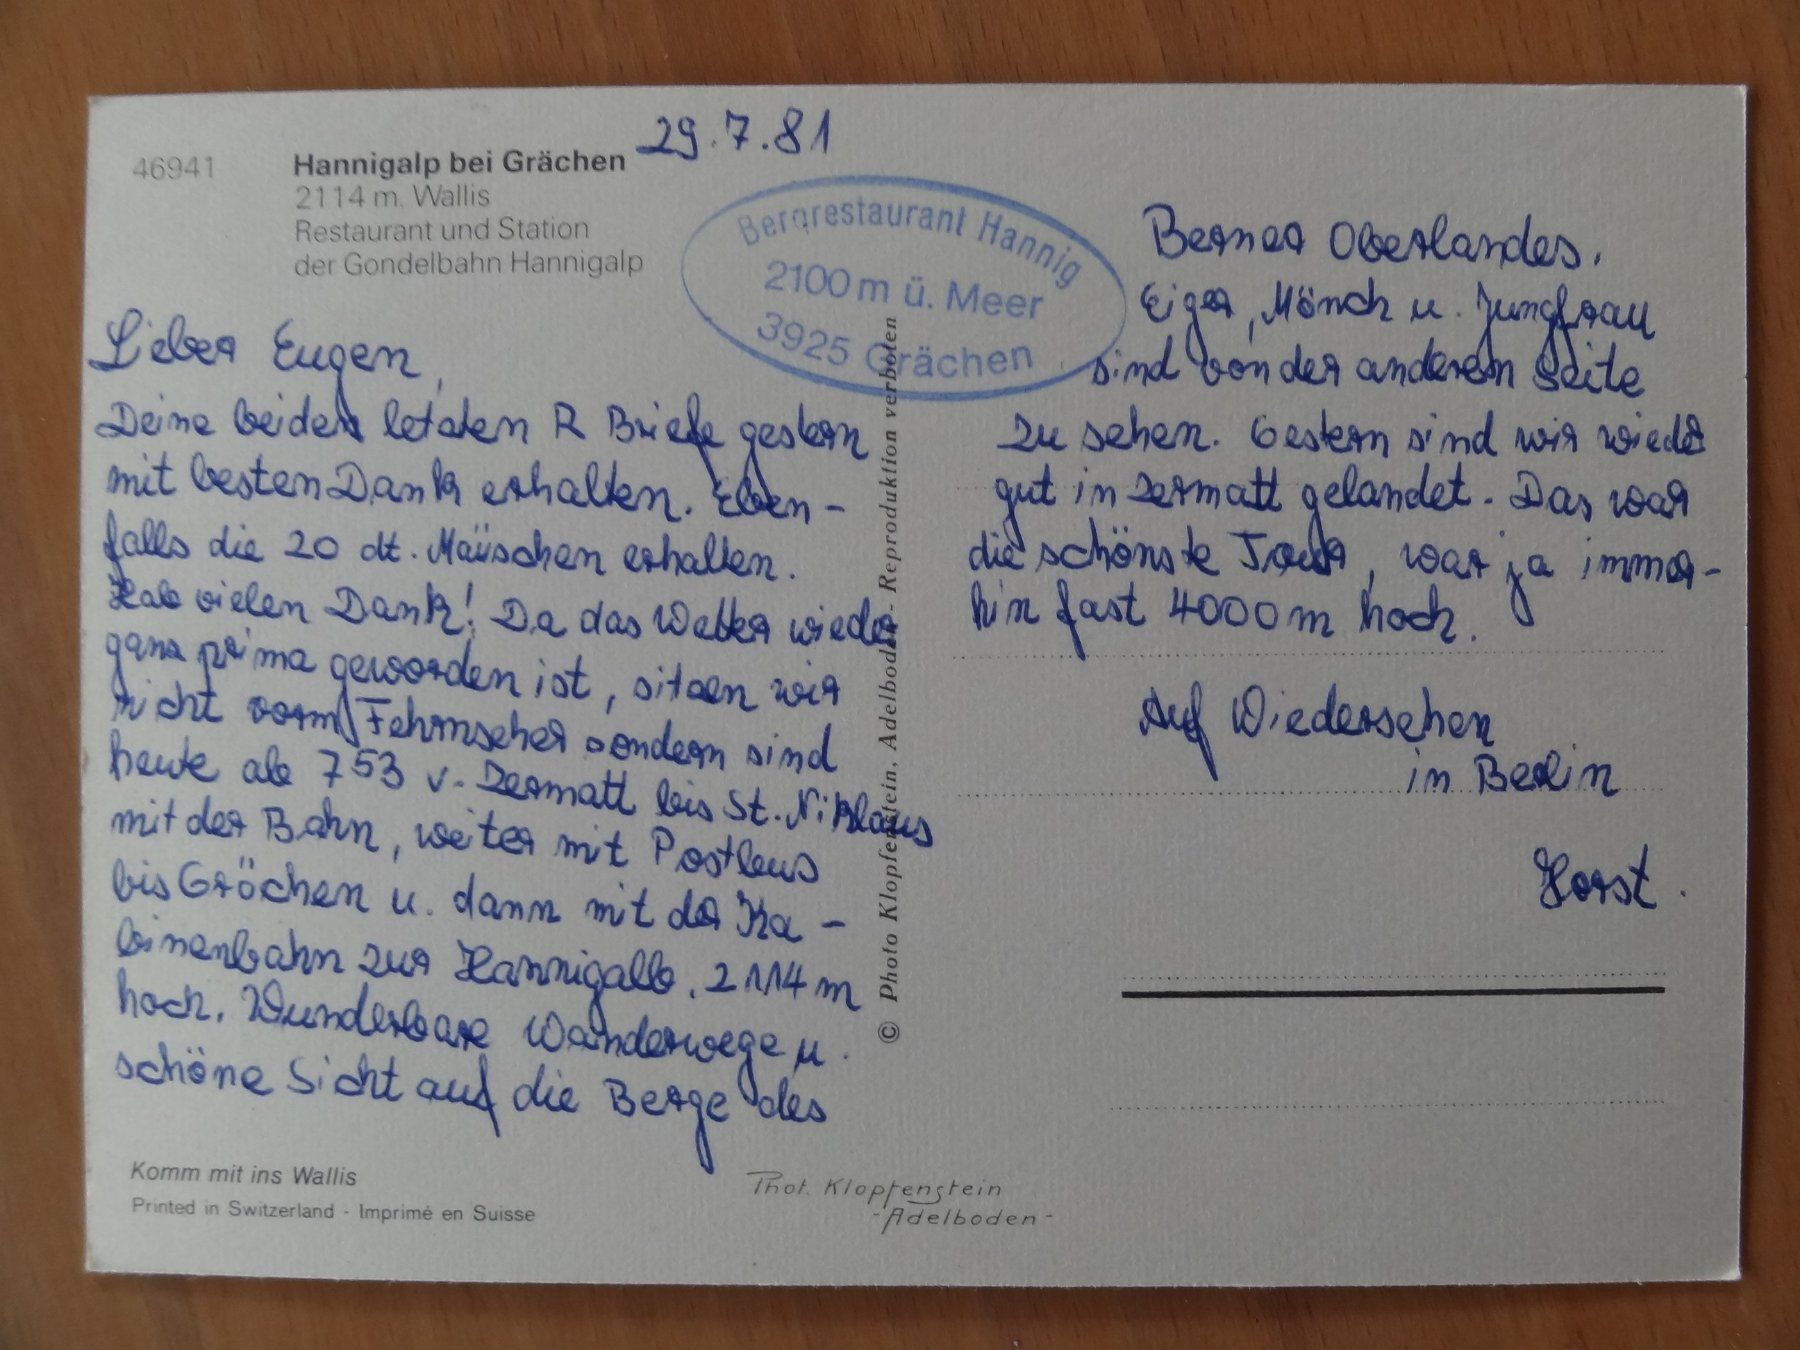 29.7.81
46941
Hannigalp bei Grächen
2114 m. Wallis
Restaurant und Station
der Gondelbahn Hannigalp
Bergrestaurant Hannig
2100 m ü. Meer
3925 Grächen
Lieber Eugen,
Deine beiden letzten R Briefe gestern
mit besten Dank erhalten. Eben-
falls die 20 dt. Mäuschen erhalten.
Hab vielen Dank! Da das Wetter wieder
ganz prima geworden ist, sitzen wir
nicht vorm Fehrnseher sondern sind
heute ab 753 v. Zermatt bis St. Niklaus
mit der Bahn, weiter mit Postbus
bis Grächen u. dann mit der Ka-
binenbahn zur Hannigalb, 2114 m
hoch. Wunderbare Wanderwege u.
schöne Sicht auf die Berge des
Berner Oberlandes.
Eiger, Mönch u. Jungfrau
sind von der anderem Seite
zu sehen. Gestern sind wir wieder
gut in Zermatt gelandet. Das war
die schönste Tour, war ja immer-
hin fast 4000 m hoch.
Auf Wiedersehen
in Berlin
Horst.
© Photo Klopfenstein, Adelboden - Reproduktion verboten
Komm mit ins Wallis
Printed in Switzerland - Imprimé en Suisse
Phot. Klopfenstein
-Adelboden-